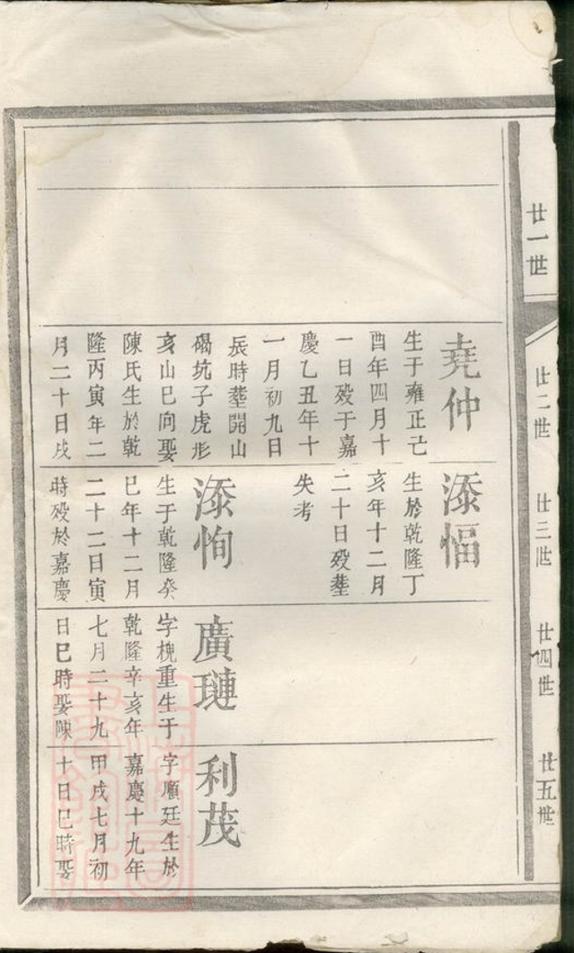 廿一世
廿二世
廿三世
廿四世
廿五世
堯仲
生于雍正己
酉年四月十
一日歿于嘉
慶乙丑年十
一月初九日
辰時塟開山
碣坑子虎形
亥山巳向娶
陳氏生於乾
隆丙寅年二
月二十日戌
添愊
生於乾隆丁
亥年十二月
二十日歿塟
失考
添恂
生于乾隆癸
巳年十二月
二十二日寅
時歿於嘉慶
廣璉
字槐重生于
乾隆辛亥年
七月二十九
日巳時娶陳
利茂
字順廷生於
嘉慶十九年
甲戌七月初
十日巳時娶